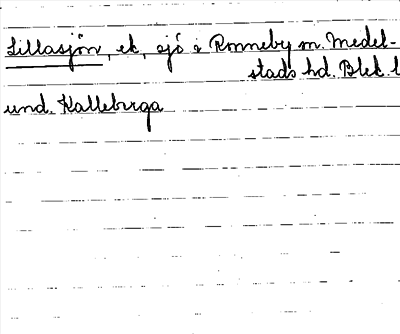 Lillasjön, ek, sjö i Ronneby sn. Medel-
stads hd. Blek. l
und. Kalleburga